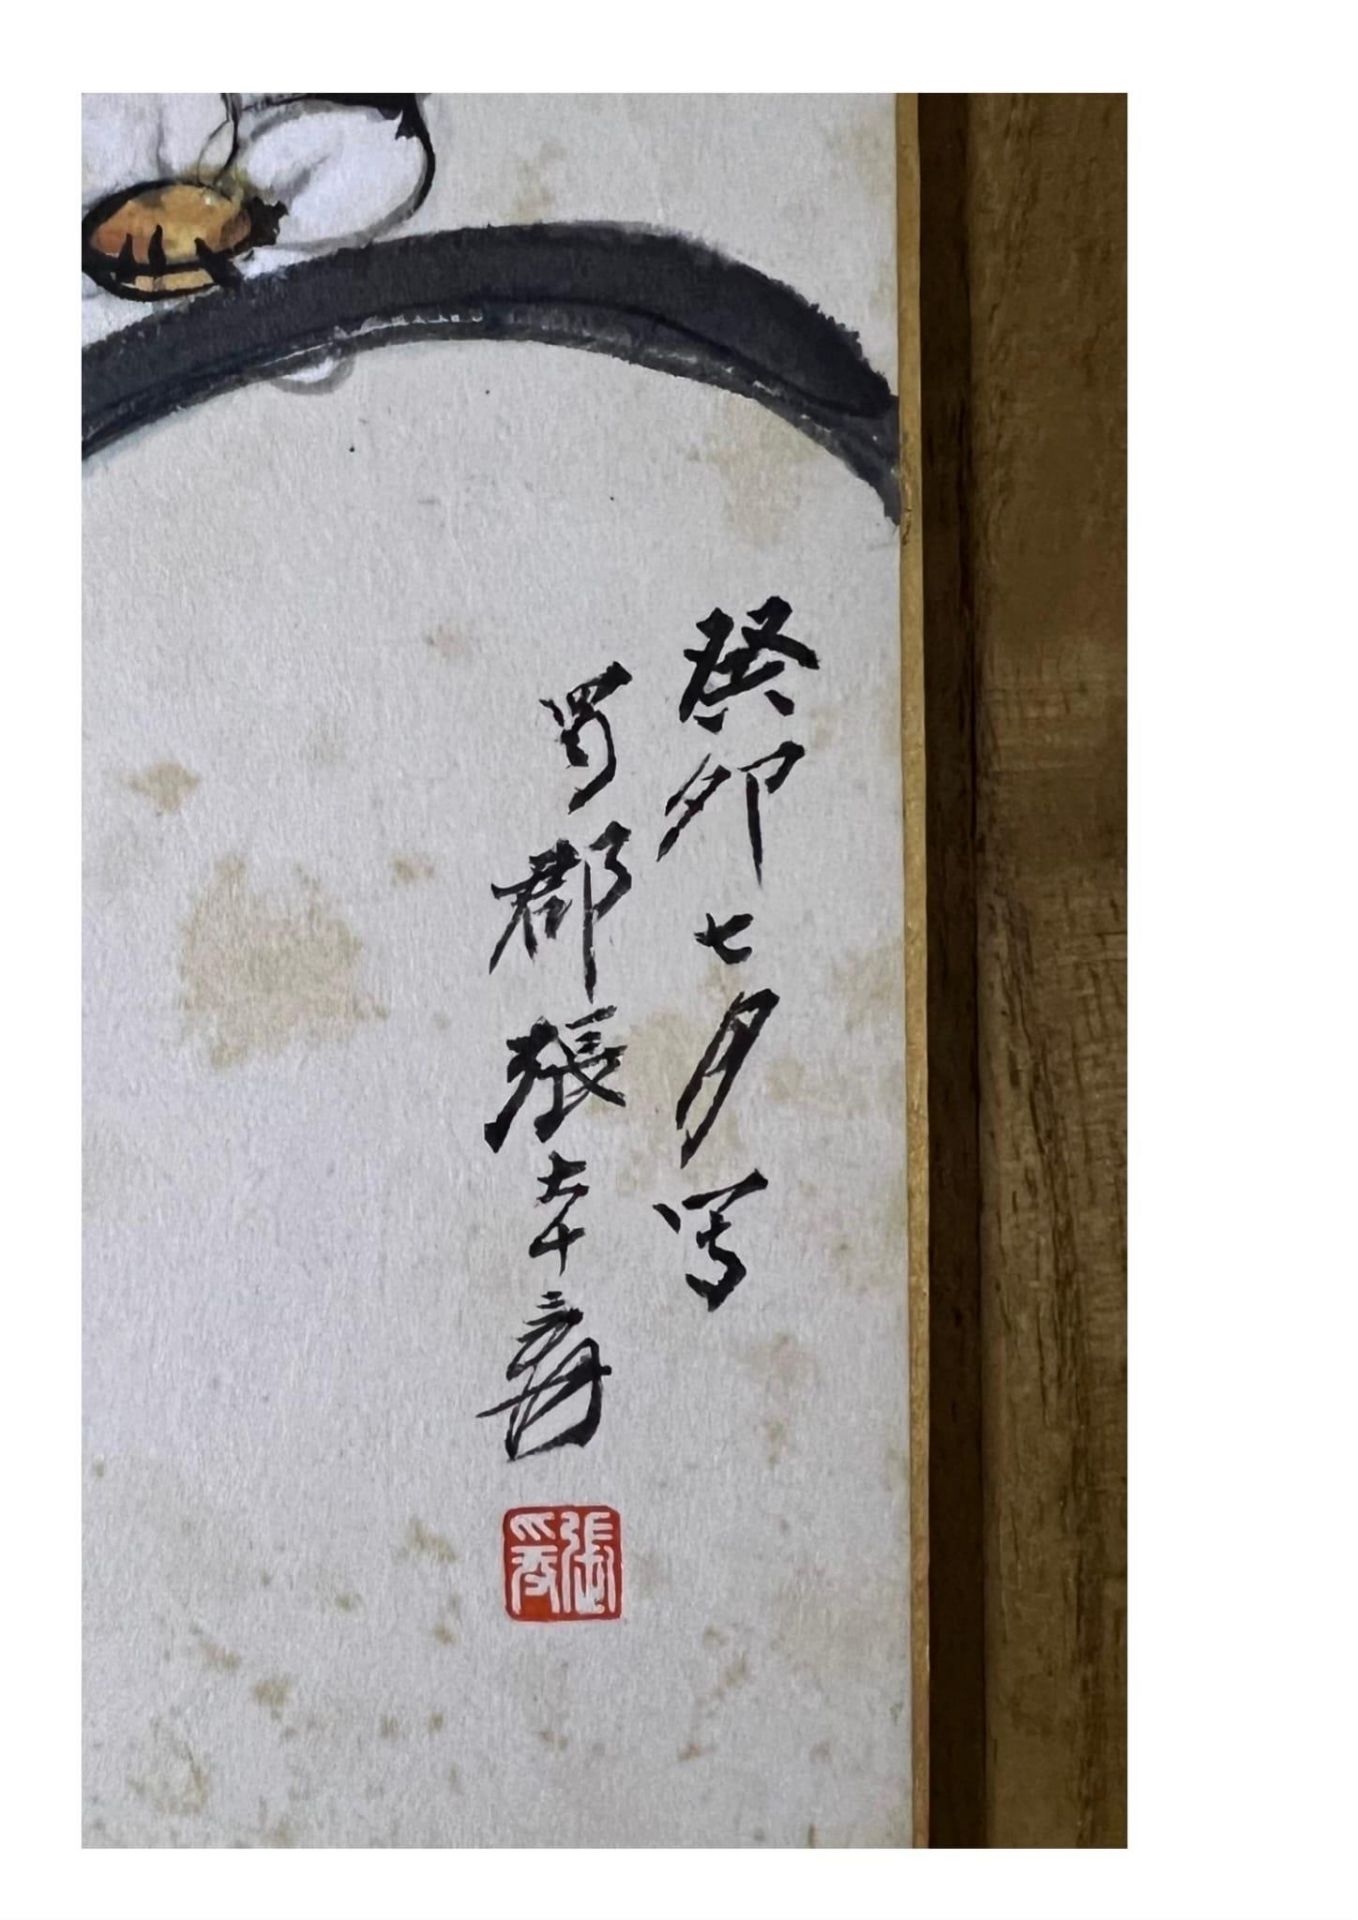 癸卯七月写
蜀郡張大千爰
張爰